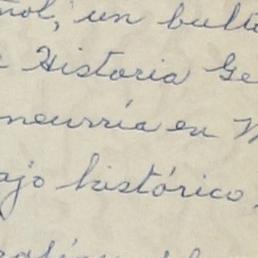 ñol, un bulto
Historia Ge
ncurría en M
ajo histórico,